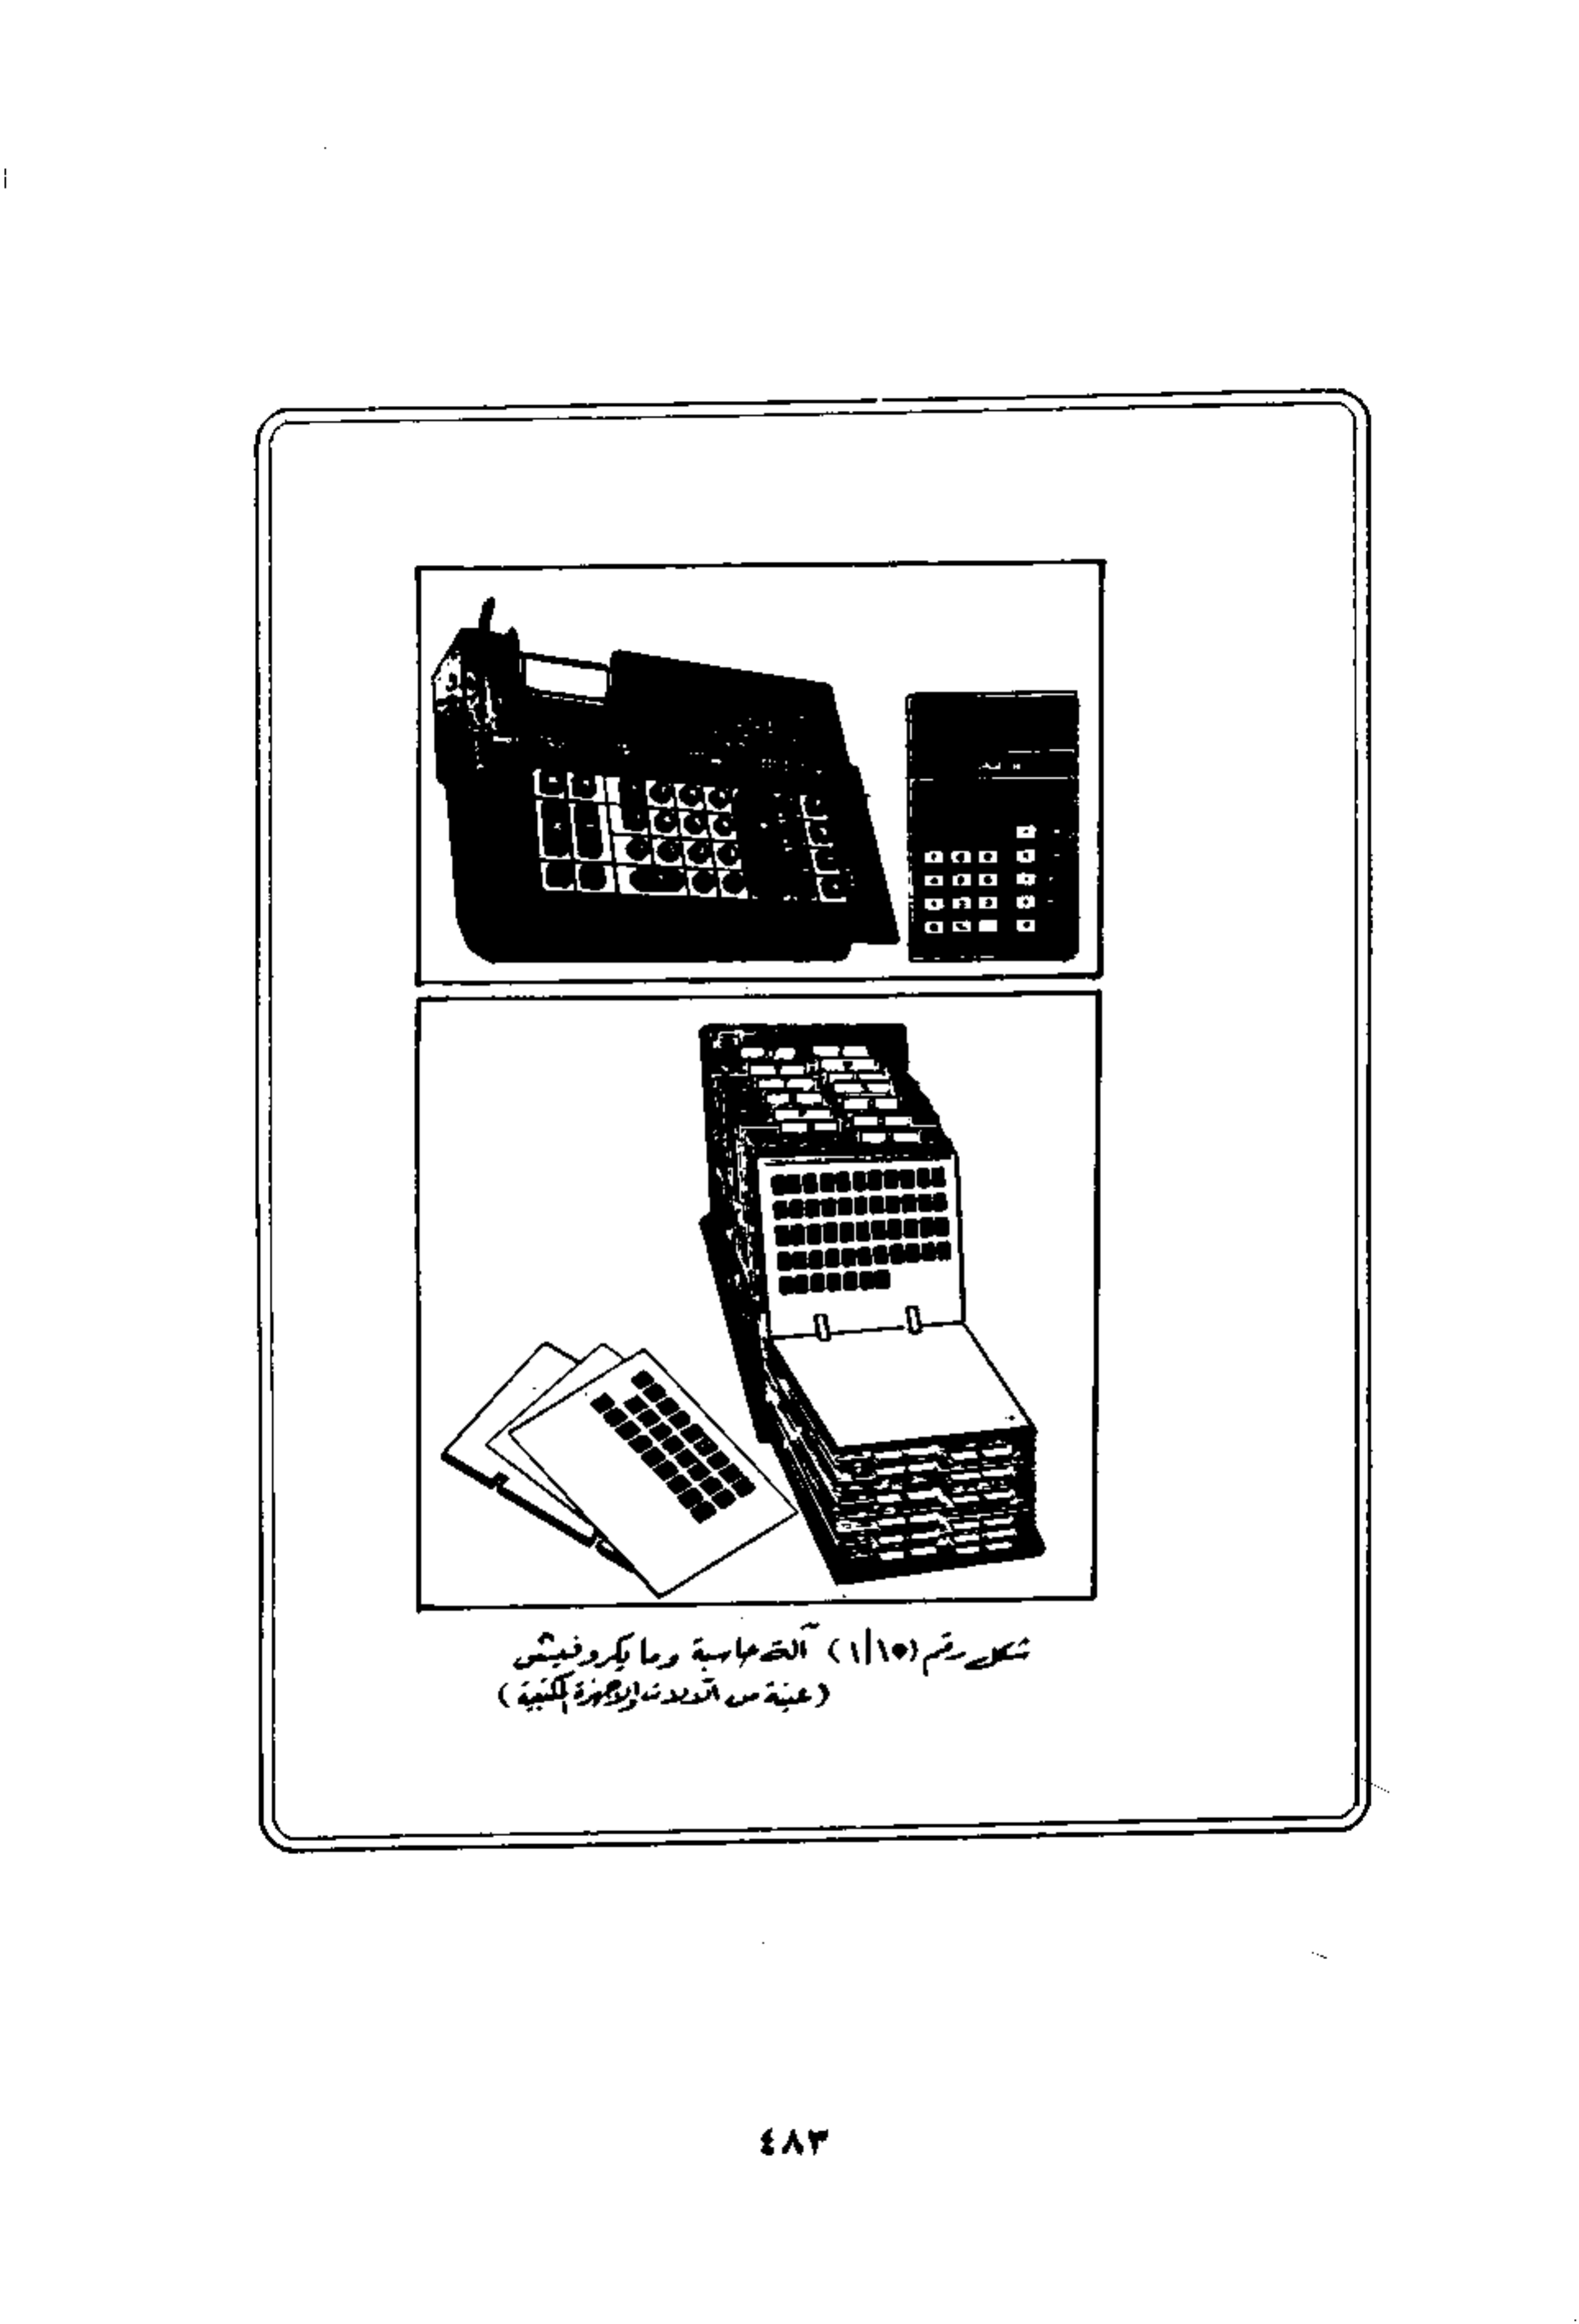 شكل رقم (١/١٥) آلة حاسبة وما يكروفيش
(عينة من الأدوات والأجهزة المكتبية)
٤٨٣